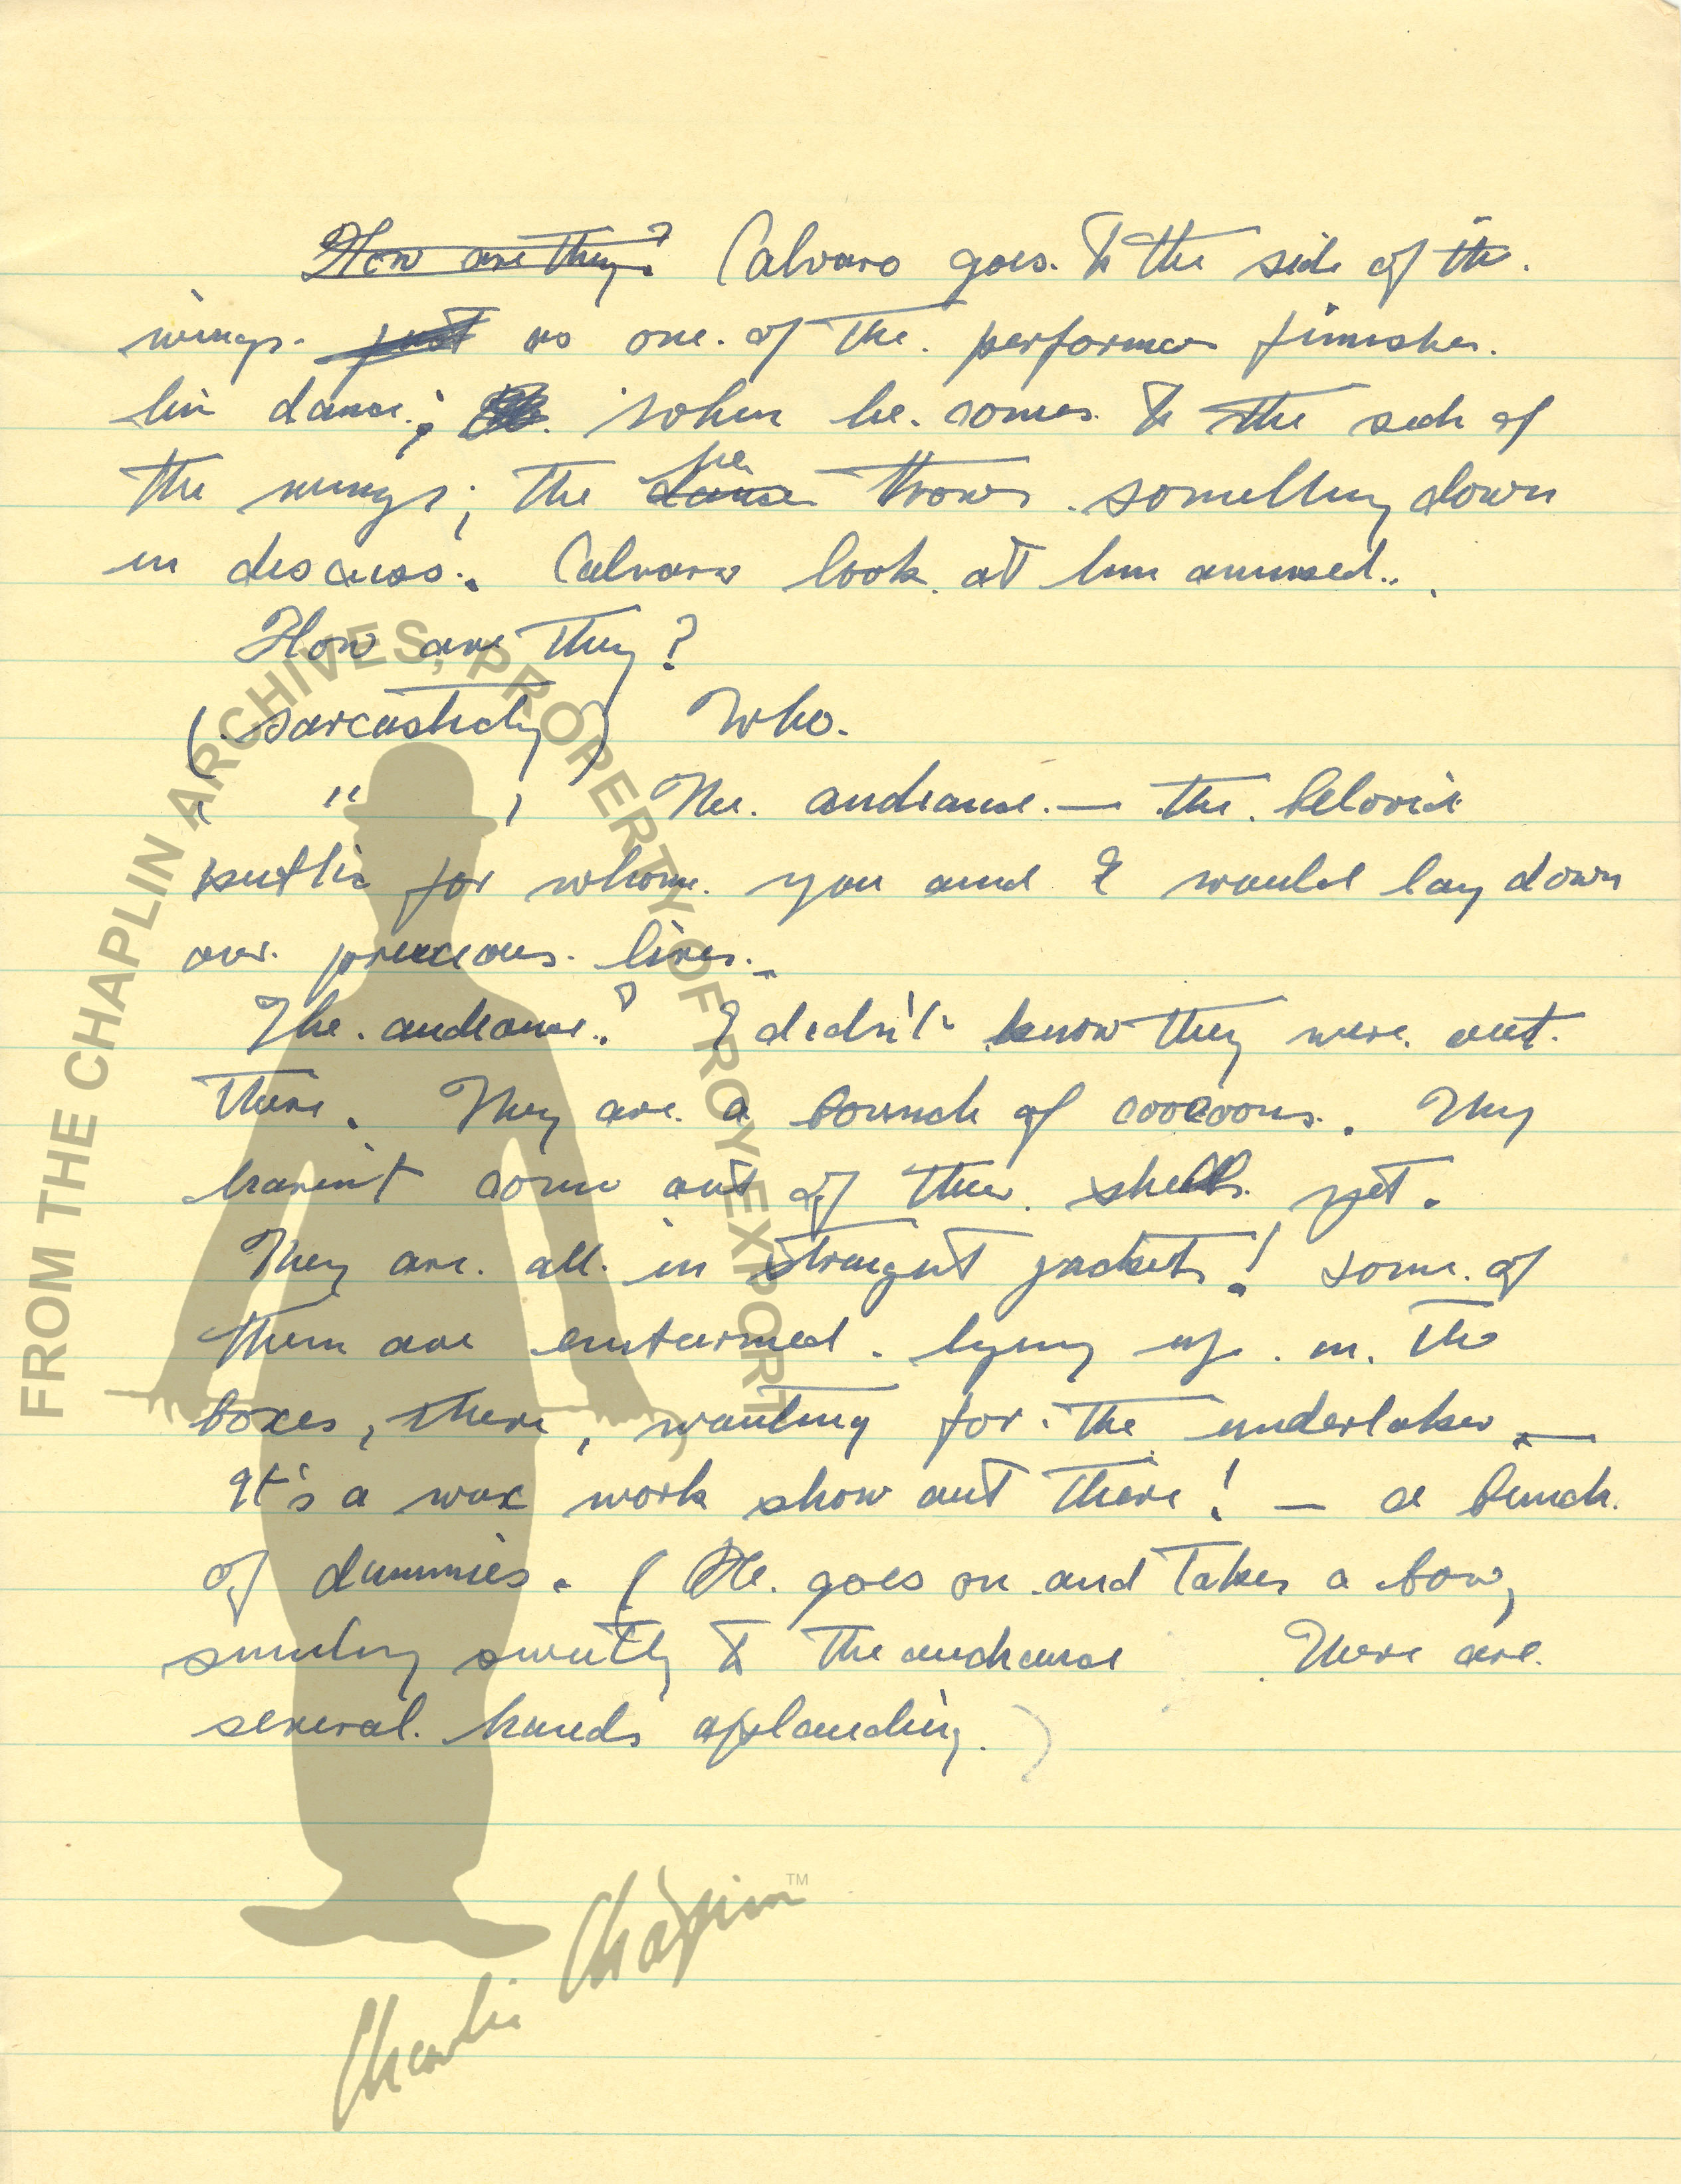 How are they? Calvaro goes. to the side of the.
wings. just as one. of the. performers finishes.
his dance.; when he. comes. to the side of
the wings; the dance he throws something down
in discuss. Calvaro look. at him amused..
How are they?
(sarcasticly) Who.
( " ) The. audiance. — the. beloved
public for whom. you and I would lay down
our. preiceous. lives.
The. audiance.? I didn't know they were. out.
there. They are. a bounch of coocoons. They
havin't come out of their. shells. yet.
They are. all. in straight jackets! some. of
them are enturmed. lying up. in. the
boxes, there, waiting for. the undertaker —
It's a wax work show out there! — a bunch.
of dummies. ( He. goes on. and takes a bow,
smiling sweetly to the audiance There are.
several. hands applauding. )
FROM THE CHAPLIN ARCHIVES, PROPERTY OF ROY EXPORT
Charlie Chaplin™